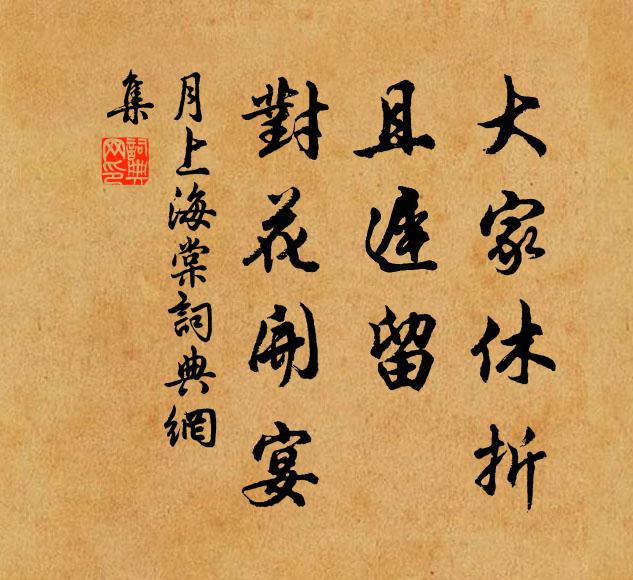 大家休折
且遲留
對花開宴
月上海棠詞典網
集
詞典网印